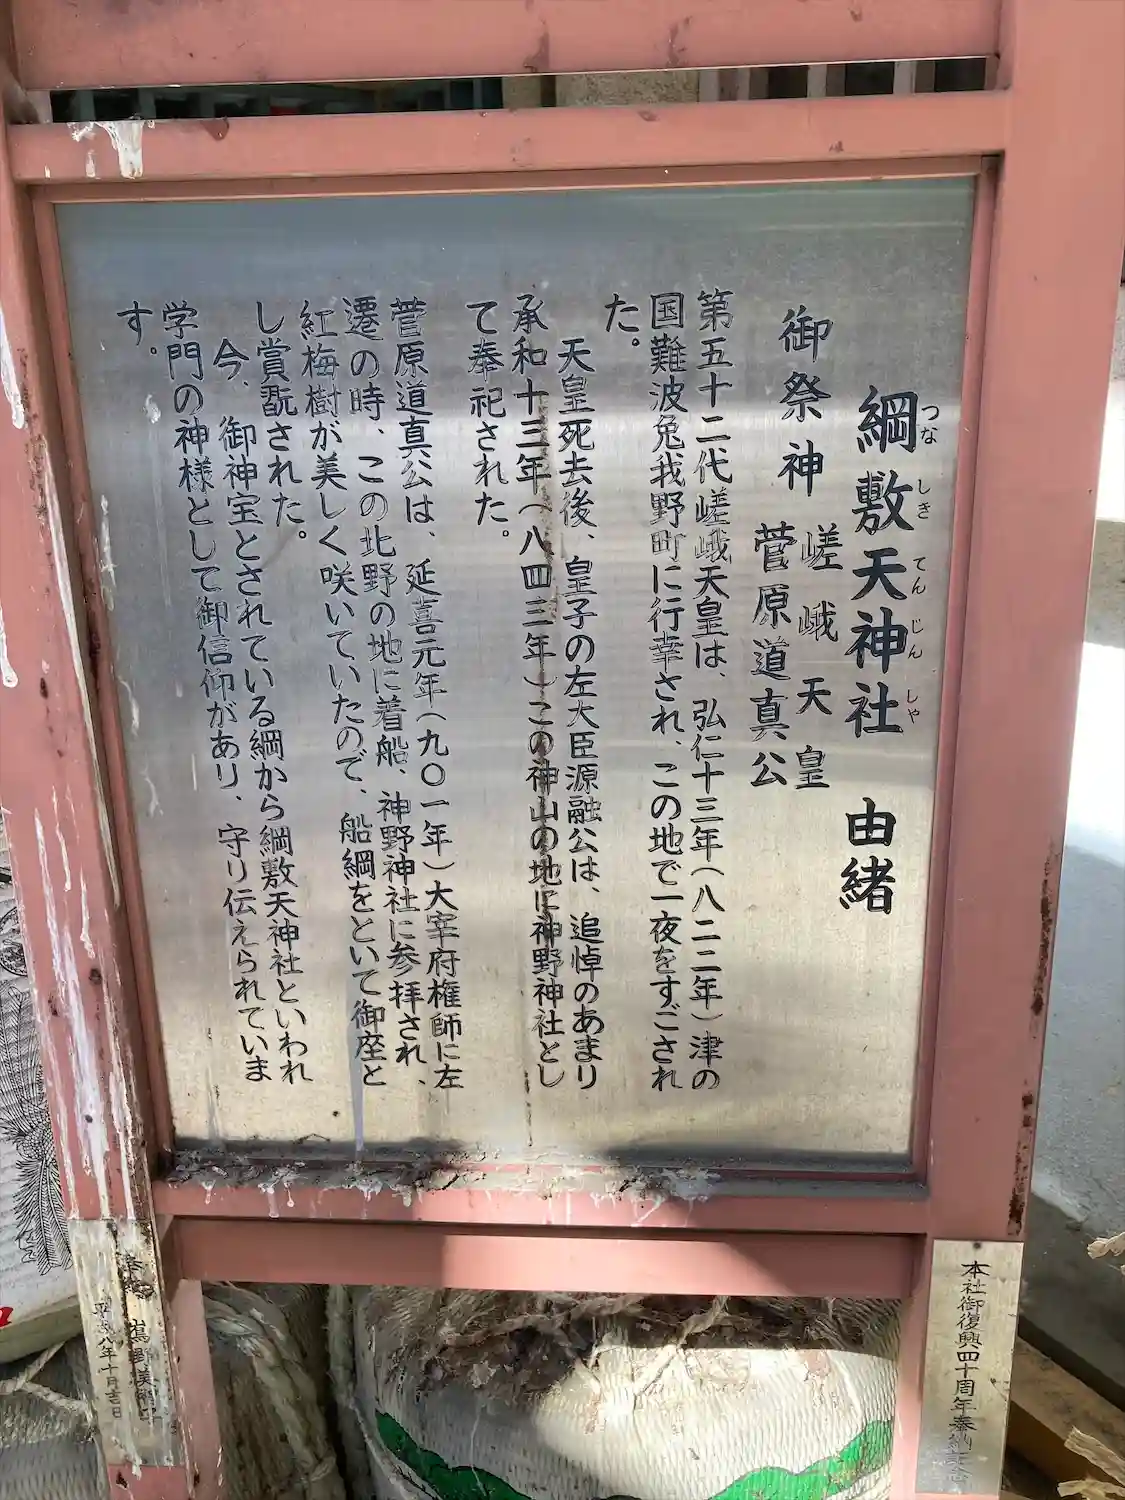 綱敷天神社 由緒
つな しき てん じん しゃ
御祭神 嵯峨天皇
菅原道真公
第五十二代嵯峨天皇は、弘仁十三年(八二二年)津の
国難波兎我野町に行幸され、この地で一夜をすごされ
た。
天皇死去後、皇子の左大臣源融公は、追悼のあまり
承和十三年(八四三年)この神山の地に神野神社とし
て奉祀された。
菅原道真公は、延喜元年(九〇一年)大宰府権師に左
遷の時、この北野の地に着船、神野神社に参拝され、
紅梅樹が美しく咲いていたので、船綱をといて御座と
し賞翫された。
今、御神宝とされている綱から綱敷天神社といわれ
学門の神様として御信仰があり、守り伝えられていま
す。
本社御復興四十周年奉納
奉納
八年十月吉日